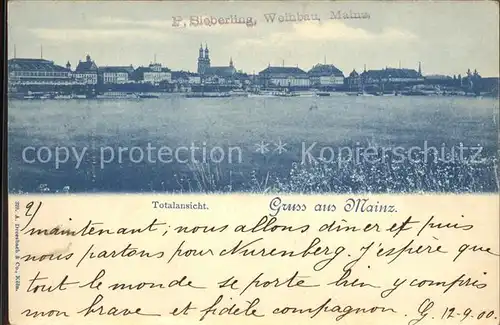 F. Sieberling, Weinbau, Mainz.
copyright-protected * * copyright-protected
Totalansicht. Gruss aus Mainz.
2/
maintenant; nous allons dîner et puis
nous partons pour Nuremberg. J'espère que
tout le monde se porte bien y compris
mon brave et fidèle compagnon. G. 12-9.00
& Co., Köln.